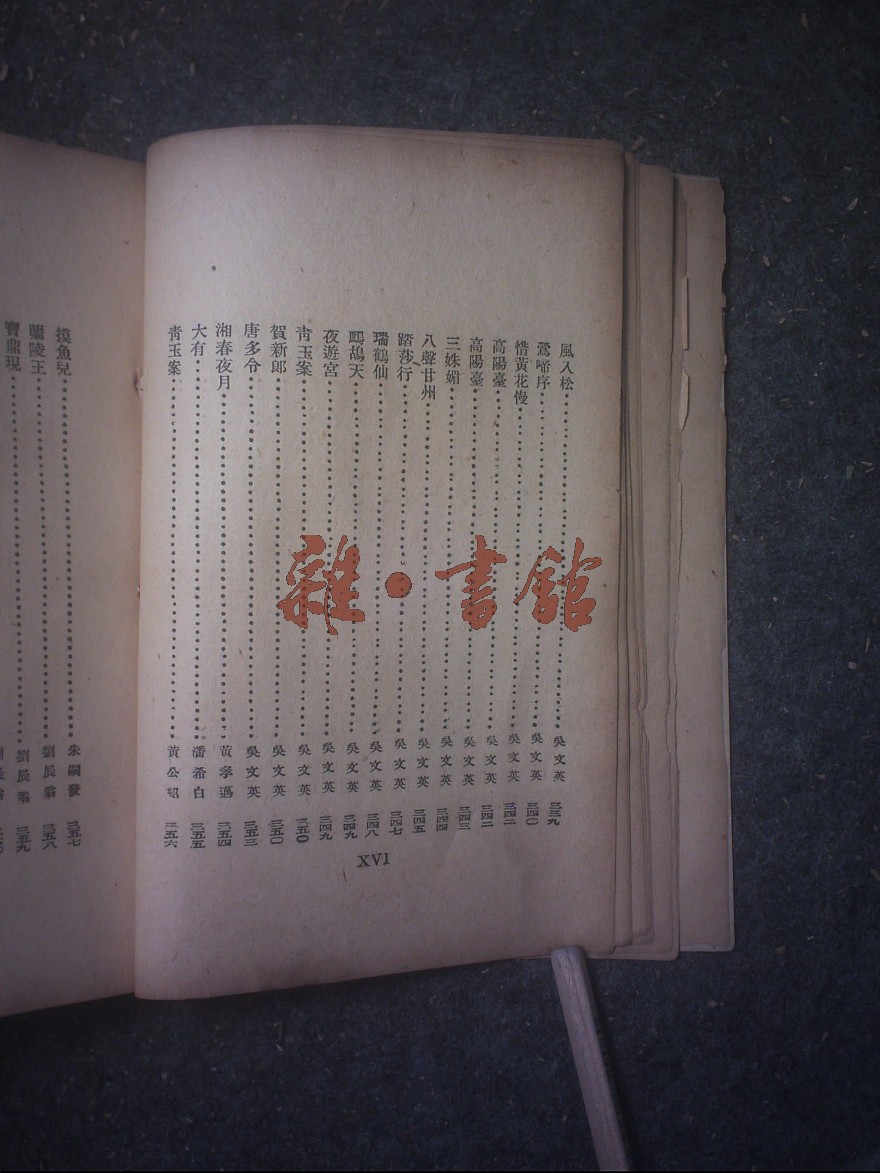 風入松……吳文英 二三九
鶯啼序……吳文英 二四〇
惜黃花慢……吳文英 二四二
高陽臺……吳文英 二四二
高陽臺……吳文英 二四三
三姝媚……吳文英 二四四
八聲甘州……吳文英 二四五
踏莎行……吳文英 二四七
瑞鶴仙……吳文英 二四八
鷓鴣天……吳文英 二四九
夜遊宮……吳文英 二四九
青玉案……吳文英 二五〇
賀新郎……吳文英 二五〇
唐多令……吳文英 二五三
湘春夜月……黃孝邁 二五四
大有……潘希白 二五五
青玉案……黃公紹 二五六
XVI
摸魚兒……朱嗣發 二五七
蘭陵王……劉辰翁 二五八
寶鼎現……劉辰翁 二五九
雜·書館